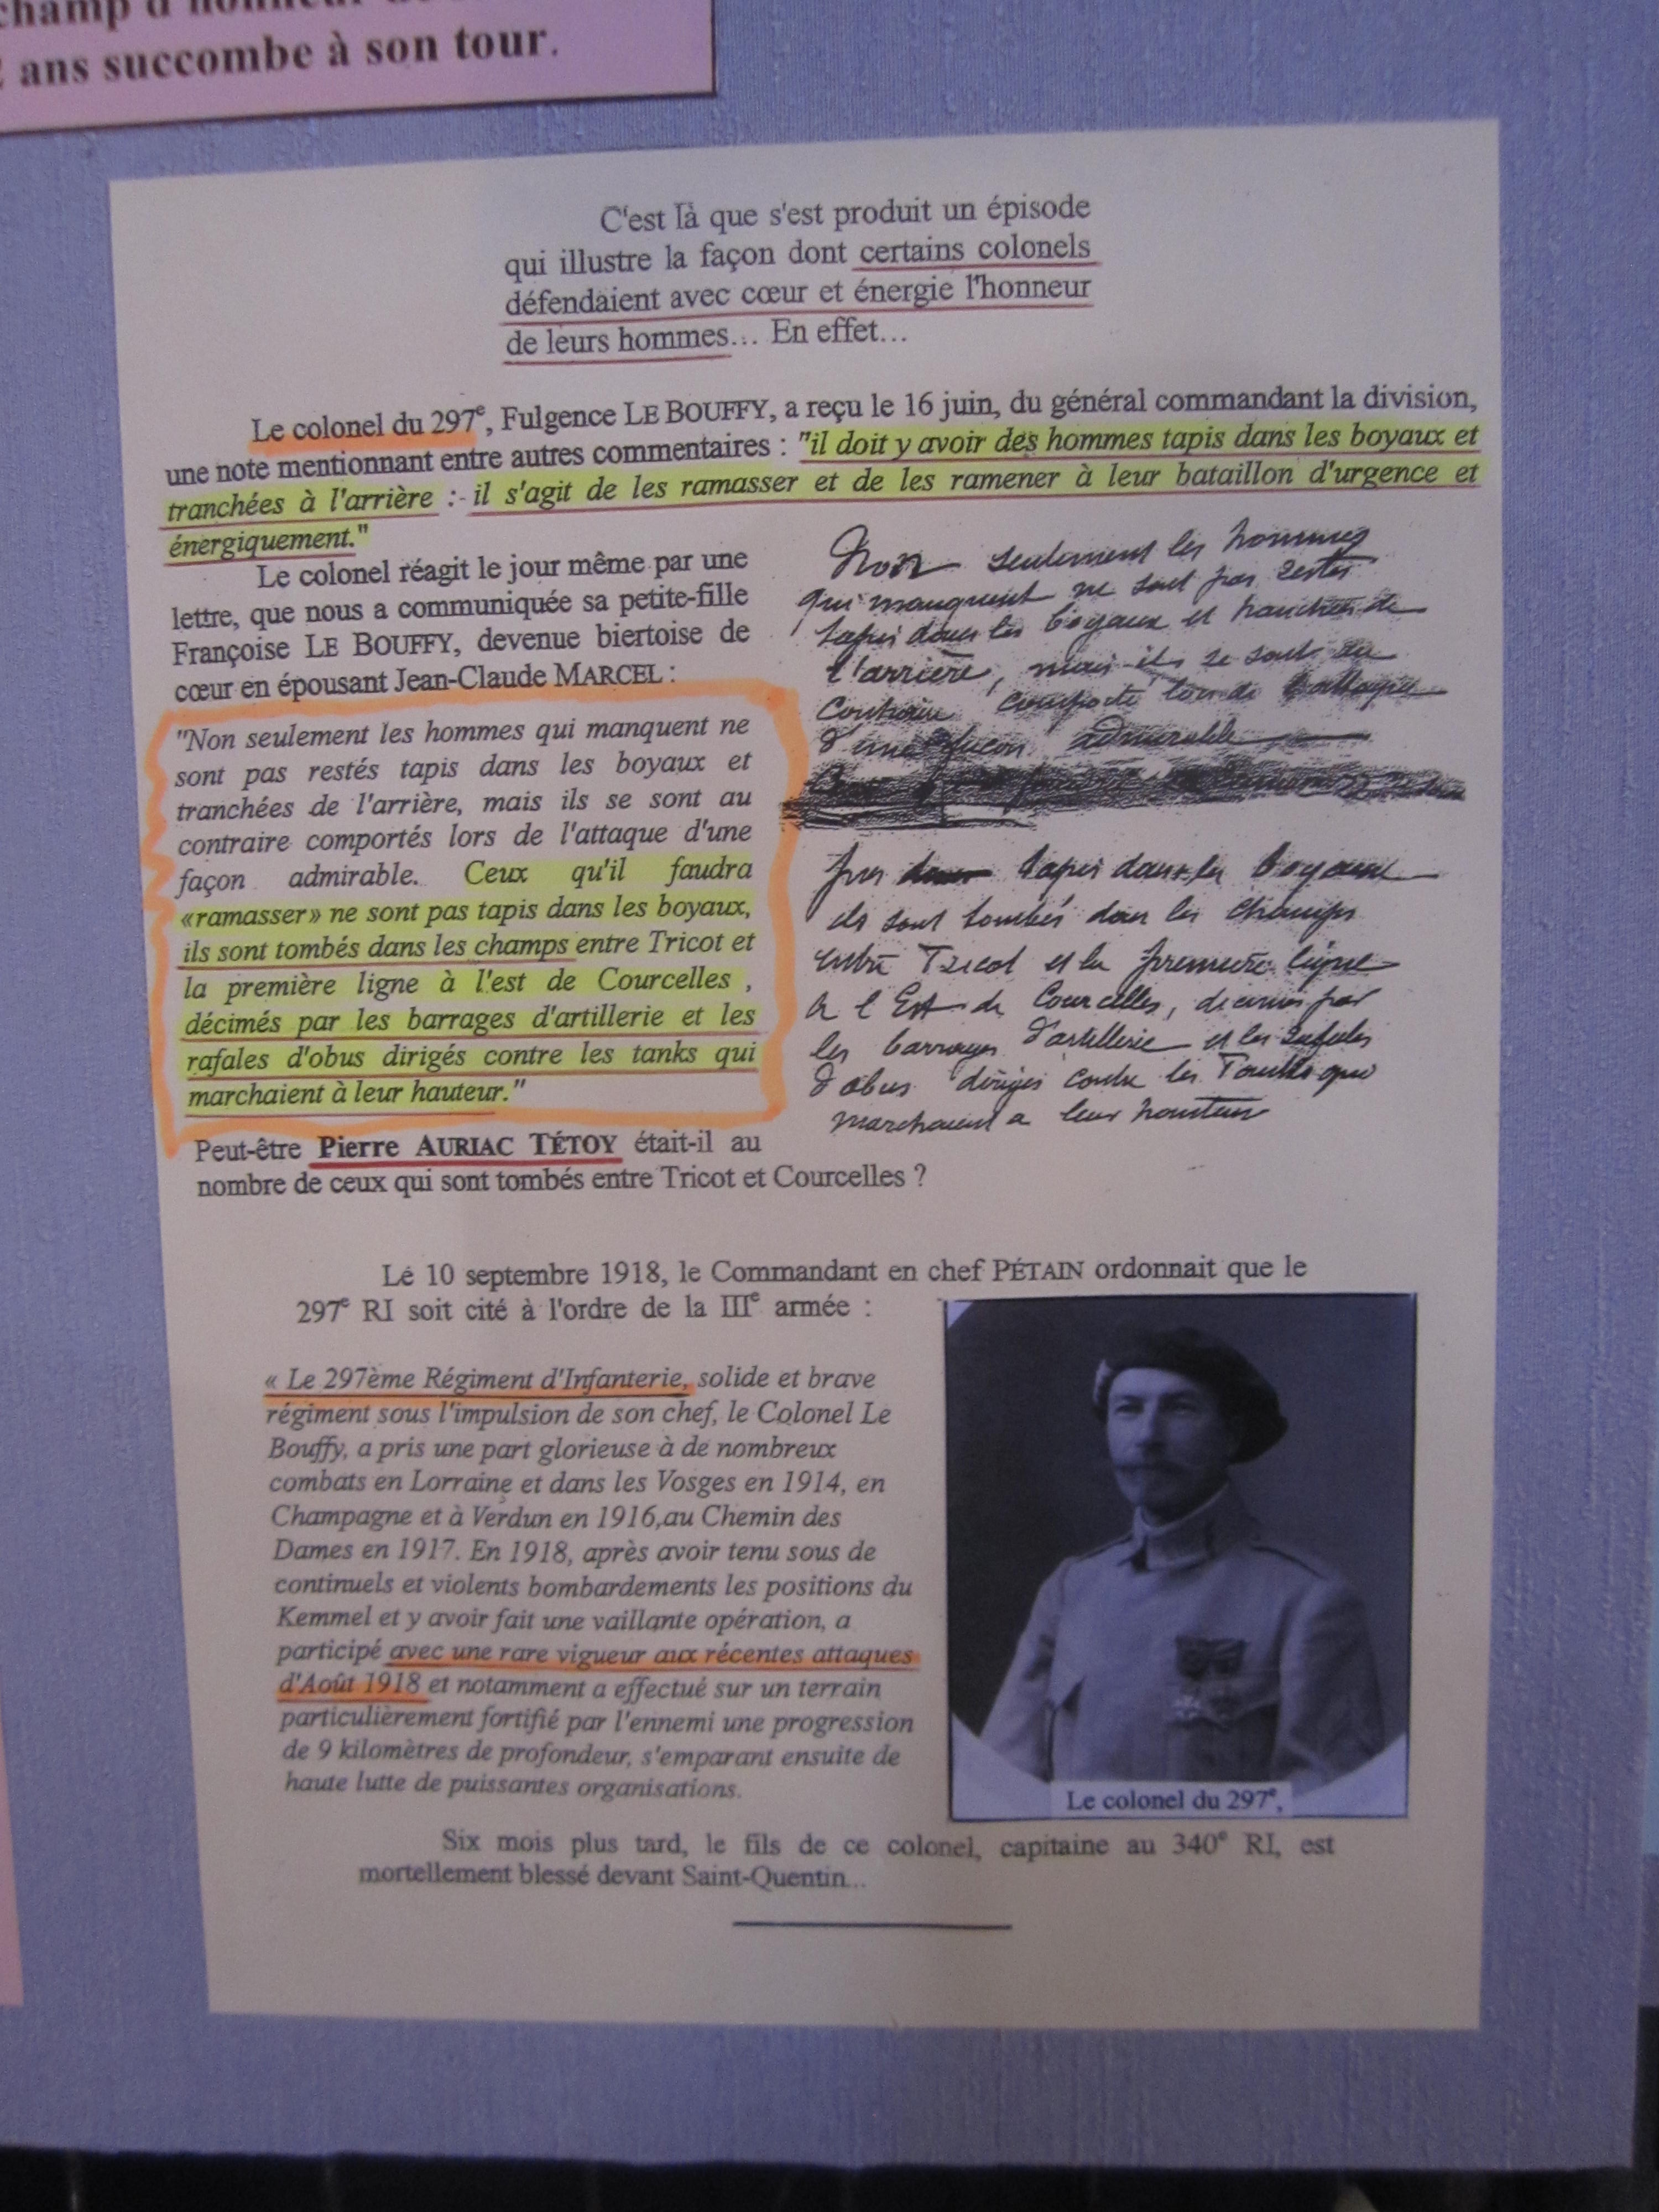 champ d'honneur
ans succombe à son tour.
C'est là que s'est produit un épisode
qui illustre la façon dont certains colonels
défendaient avec cœur et énergie l'honneur
de leurs hommes... En effet...
Le colonel du 297e, Fulgence LE BOUFFY, a reçu le 16 juin, du général commandant la division,
une note mentionnant entre autres commentaires : "il doit y avoir des hommes tapis dans les boyaux et
tranchées à l'arrière :- il s'agit de les ramasser et de les ramener à leur bataillon d'urgence et
énergiquement."
Le colonel réagit le jour même par une
lettre, que nous a communiquée sa petite-fille
Françoise LE BOUFFY, devenue biertoise de
cœur en épousant Jean-Claude MARCEL :
"Non seulement les hommes qui manquent ne
sont pas restés tapis dans les boyaux et
tranchées de l'arrière, mais ils se sont au
contraire comportés lors de l'attaque d'une
façon admirable. Ceux qu'il faudra
«ramasser» ne sont pas tapis dans les boyaux,
ils sont tombés dans les champs entre Tricot et
la première ligne à l'est de Courcelles ,
décimés par les barrages d'artillerie et les
rafales d'obus dirigés contre les tanks qui
marchaient à leur hauteur."
Non seulement les hommes
qui manquent ne sont pas restés
tapis dans les boyaux et tranchées de
l'arrière, mais ils se sont au
contraire comporté lors de l'attaque
d'une façon admirable
pas tapis dans les boyaux
ils sont tombés dans les champs
entre Tricot et la première ligne
à l'Est de Courcelles, décimés par
les barrages d'artillerie et les rafales
d'obus dirigés contre les Tanks qui
marchaient à leur hauteur
Peut-être Pierre AURIAC TÉTOY était-il au
nombre de ceux qui sont tombés entre Tricot et Courcelles ?
Le 10 septembre 1918, le Commandant en chef PÉTAIN ordonnait que le
297e RI soit cité à l'ordre de la IIIe armée :
« Le 297ème Régiment d'Infanterie, solide et brave
régiment sous l'impulsion de son chef, le Colonel Le
Bouffy, a pris une part glorieuse à de nombreux
combats en Lorraine et dans les Vosges en 1914, en
Champagne et à Verdun en 1916,au Chemin des
Dames en 1917. En 1918, après avoir tenu sous de
continuels et violents bombardements les positions du
Kemmel et y avoir fait une vaillante opération, a
participé avec une rare vigueur aux récentes attaques
d'Août 1918 et notamment a effectué sur un terrain
particulièrement fortifié par l'ennemi une progression
de 9 kilomètres de profondeur, s'emparant ensuite de
haute lutte de puissantes organisations.
Le colonel du 297e,
Six mois plus tard, le fils de ce colonel, capitaine au 340e RI, est
mortellement blessé devant Saint-Quentin...